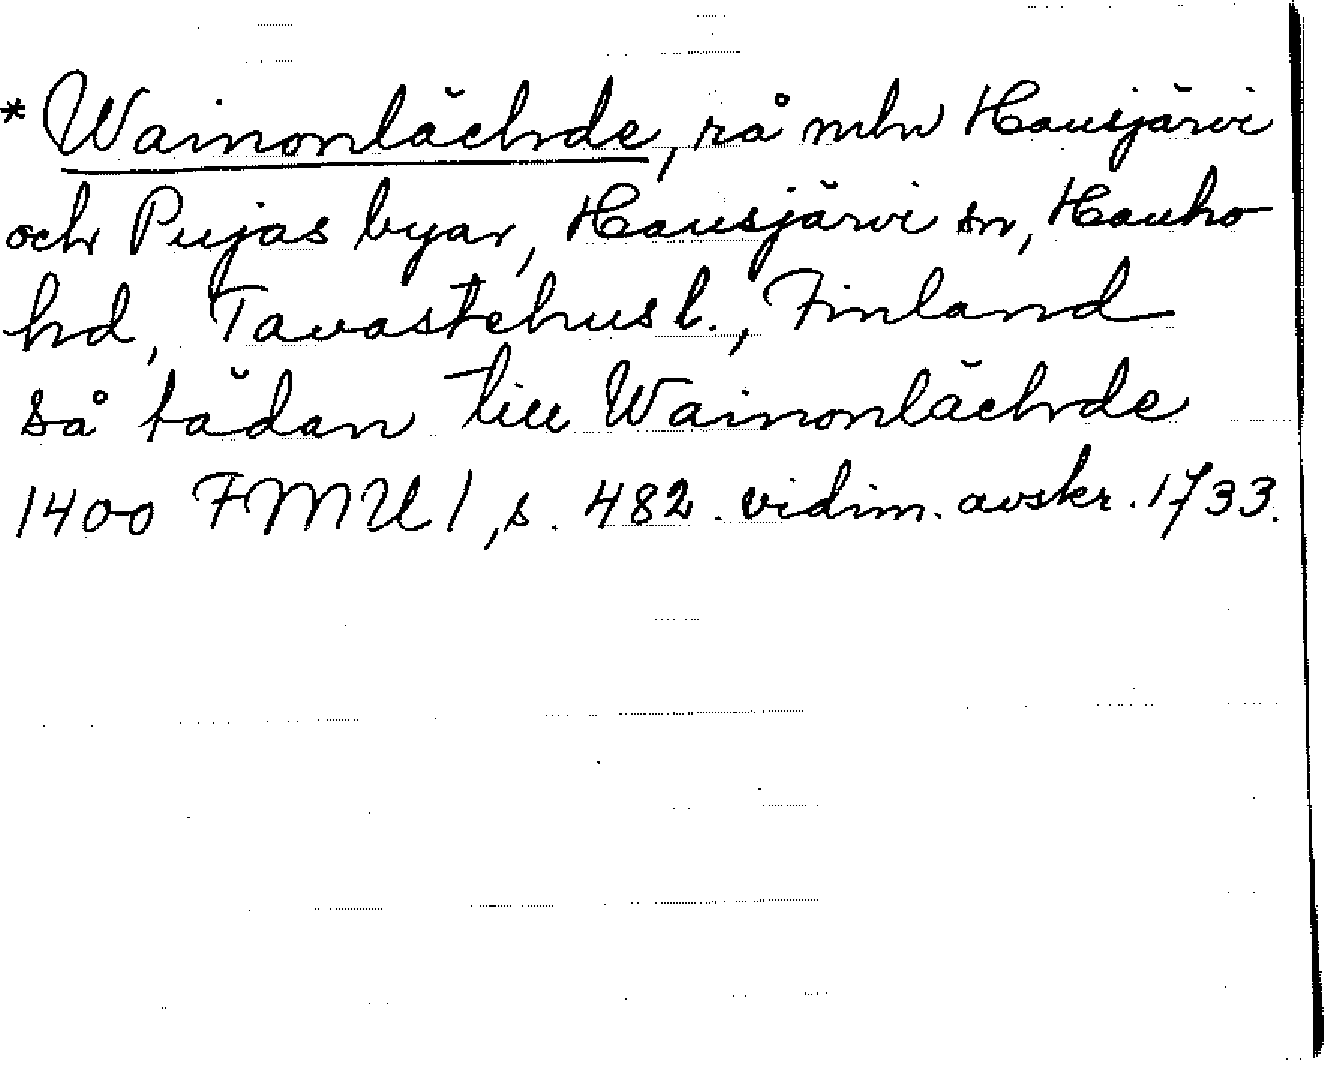 * Wainonlächde, rå mln Hausjärvi
och Pujas byar, Hausjärvi sn, Hauho
hd, Tavastehus l., Finland
så tädan till Wainonlächde
1400 FMU I, s. 482. vidim. avskr. 1733.